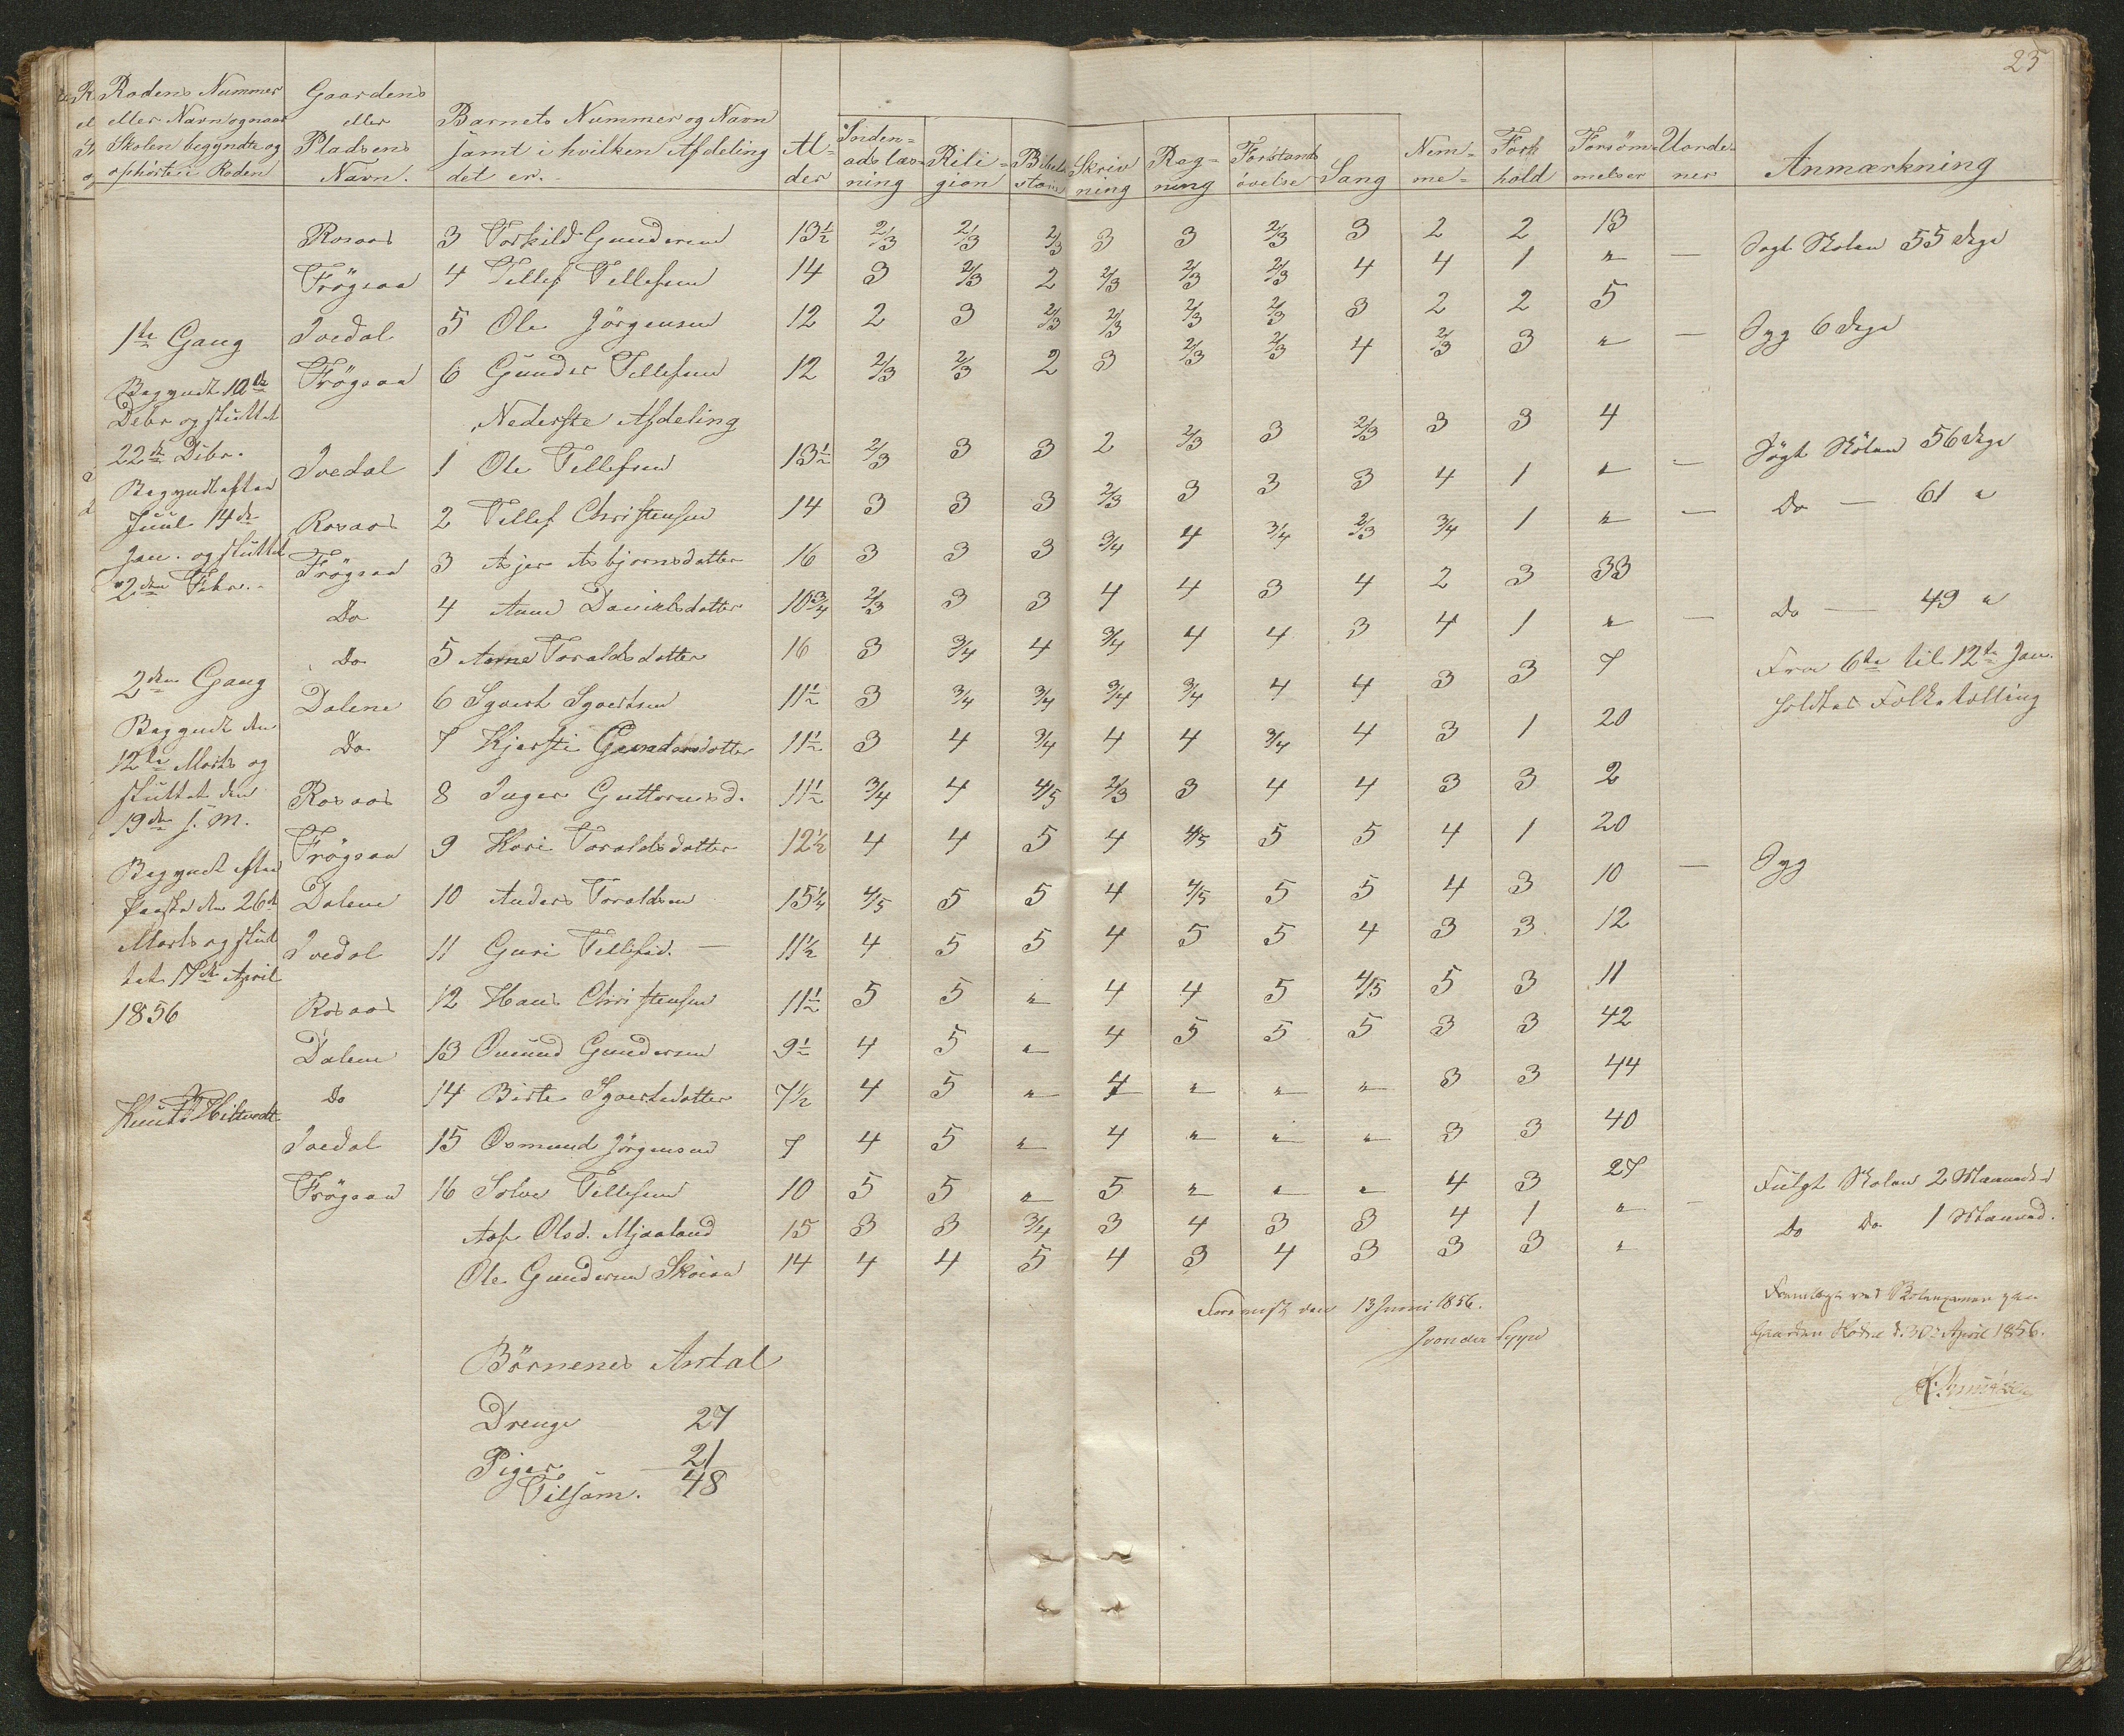 25
Rodens Nummer
eller Navn og naar
Skolen begyndte og
ophörte i Roden
Gaardens
eller
Pladsens
Navn.
Barnets Nummer og Navn
samt i hvilken Afdeling
det er.
Al-
der
Inden-
adslæs-
ning
Rili-
gion
Skriv
ning
Reg-
ning
Forstands
övelse
Sang
Nem-
me-
Forh
hold
Forsöm-
melser
Uorde-
ner
Anmærkning
Rosaas 3 Torkild Gundersen 13½ 2/3 2/3 2/3 3 3 2/3 3 2 2 13 Sögt Skolen 55 dage
Frögsaa 4 Tellef Tellefsen 14 3 2/3 2 2/3 2/3 2/3 4 4 1 " —
Ivedal 5 Ole Jörgensen 12 2 3 2/3 2/3 2/3 2/3 3 2 2 5 Syg 6 dage
Frögsaa 6 Gunder Tellefsen 12 2/3 2/3 2 3 2/3 2/3 4 2/3 3 " —
Nederste Afdeling
Ivedal 1 Ole Tellefsen 13½ 2/3 3 3 2 2/3 3 2/3 3 3 4 Sögt Skolen 56 dage
Rosaas 2 Tellef Christensen 14 3 3 3 2/3 3 3 3 4 1 " — Do — 61 "
Frögsaa 3 Asjer Asbjornsdatter 16 3 3 3 3/4 4 3/4 2/3 3/4 1 " —
Do 4 Anne Danielsdatter 10¾ 2/3 3 3 4 4 3 4 2 3 33 Do — 49 "
Do 5 Anne Toraldsdatter 16 3 3/4 4 3/4 4 4 3 4 1 " —
Dalene 6 Sgvert Sgvertsen 11½ 3 3/4 3/4 3/4 3/4 4 4 3 3 7 Fra 6te til 12te Jan.
holdtes Folketælling
Do 7 Kjersti Gundersdatter 11½ 3 4 3/4 4 4 3/4 4 3 1 20
Rosaas 8 Inger Guttormsd. 11½ 3/4 4 4/5 2/3 3 4 4 3 3 2
Frögsaa 9 Kari Toraldsdatter 12½ 4 4 5 4 4/5 5 5 4 1 20
Dalene 10 Anders Toraldsen 15¼ 4/5 5 5 4 4/5 5 5 4 3 10 — Syg
Ivedal 11 Guri Tellefsd. — 11½ 4 5 5 4 5 5 4 3 3 12
Rosaas 12 Hans Christensen 11½ 5 5 " 4 4 5 4/5 5 3 11
Dalene 13 Omund Gundersen 9½ 4 5 " 4 5 5 5 3 3 42
Do 14 Birte Sgvertsdatter 7½ 4 5 " 4 " " " 3 3 44
Ivedal 15 Osmund Jörgensen 7 4 5 " 4 " " " 3 3 40
Frögsaa 16 Solve Tellefsen 10 5 5 " 5 " " " 4 3 27 Fulgt Skolen 2 Maaneder
Aase Olsd. Mjaaland 15 3 3 3/4 3 4 3 3 4 1 " — Do Do 1 Maaned.
Ole Gundersen 14 4 4 5 4 3 4 3 3 3 "
1te Gang
Begyndt 10de
Debr og sluttet
22de Dibr.
Begyndt efter
Juul 14de
Jan. og sluttet
2den Febr.
2den Gang
Begyndt den
12te Marts og
sluttet den
19de s. M.
Begyndt efter
Paaske den 26de
Marts og slut
tet 17de April
1856
Foreviist den 13 Juni 1856.
Fremlagt ved
Gaarden d. 30te April 1856.
Börnenes Antal
Drenge 27
Piger 21
Tilsam. 48